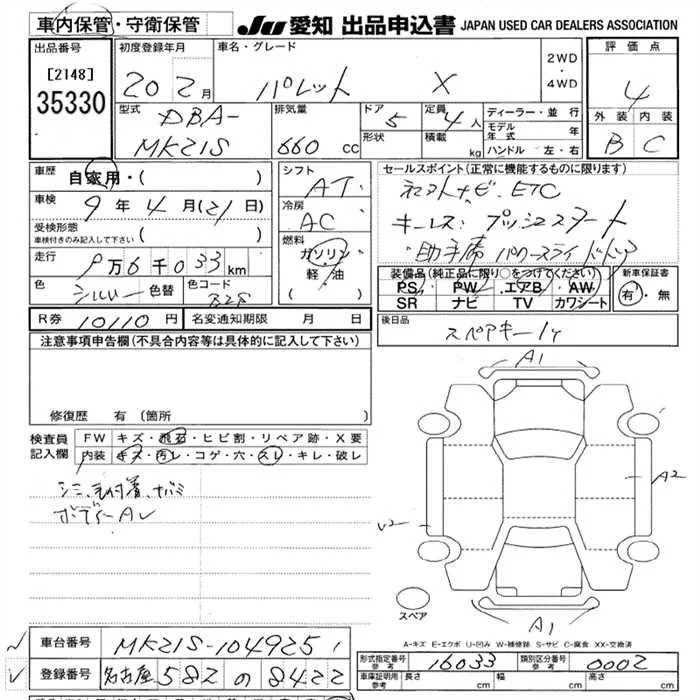 車内保管・守衛保管
JU 愛知 出品申込書 JAPAN USED CAR DEALERS ASSOCIATION
出品番号
[2148]
35330
初度登録年月
20 2月
車名・グレード
パレット X
2WD
・
4WD
評価点
4
外装 内装
B C
型式
DBA-
MK21S
排気量
660 cc
ドア 5
形状
定員 4人
積載 kg
ディーラー・並行
モデル年式 年
ハンドル 左・右
車歴
自家用・( )
車検
9年4月(21日)
受検形態
車検付きのみ記入して下さい ( )
走行
9万6千033km
色
シルバー
色替
色コード
シフト
AT
冷房
AC
燃料
ガソリン
軽・油
( )
セールスポイント(正常に機能するものに限ります)
ナビ、ETC
キーレス: プッシュスタート
助手席パワースライドドア
装備品(純正品に限り○をつけてください)
PS PW エアB AW
SR ナビ TV カワシート
新車保証書
有・無
R券 10110円
名変通知期限 月 日
後日品
スペアキー1ヶ
注意事項申告欄(不具合内容等は具体的に記入して下さい)
修復歴 有(箇所
検査員
記入欄
FW キズ・飛石・ヒビ割・リペア跡・X要
内装 キズ・汚レ・コゲ・穴・スレ・キレ・破レ
シミ、毛付着、ナバミ
ボディーAレ
A1
A2
A1
スペア
A-キズ E-エクボ U-凹み W-補修跡 S-サビ C-腐食 XX-交換済
車台番号 MK21S-104925
登録番号 名古屋 582 の 8422
形式指定番号
参考
16033
類別区分番号
参考
0002
車庫証明用
参考
長さ cm
幅 cm
高さ cm